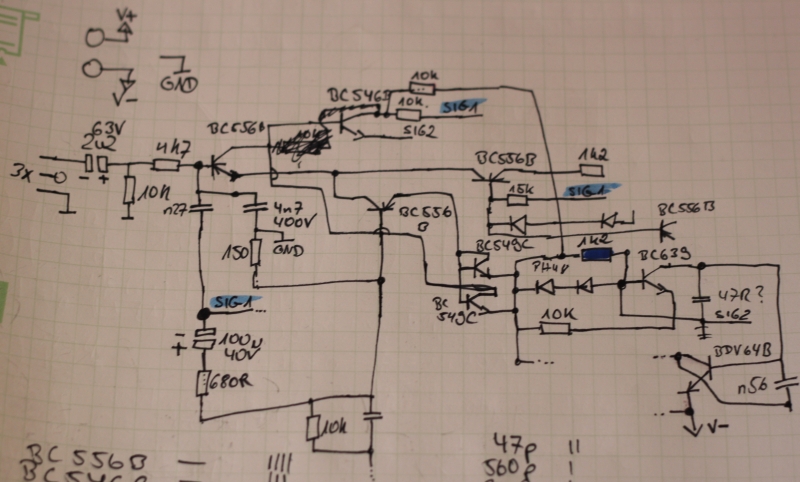 V+
V-
GND
63V
2u2
- +
3x
10k
4k7
BC556B
n27
4n7
400V
GND
150
SIG1
- 
+
100u
40V
680R
10k
BC546B
10k
10k.
SIG1
SIG2
BC556
B
BC556B
1k2
15k
SIG1
BC556B
BC549C
BC
549C
1k2
BC639
10K
47R?
SIG2
BDV64B
n56
V-
BC 556B — ||||
BC546B |||
47p ||
560p |